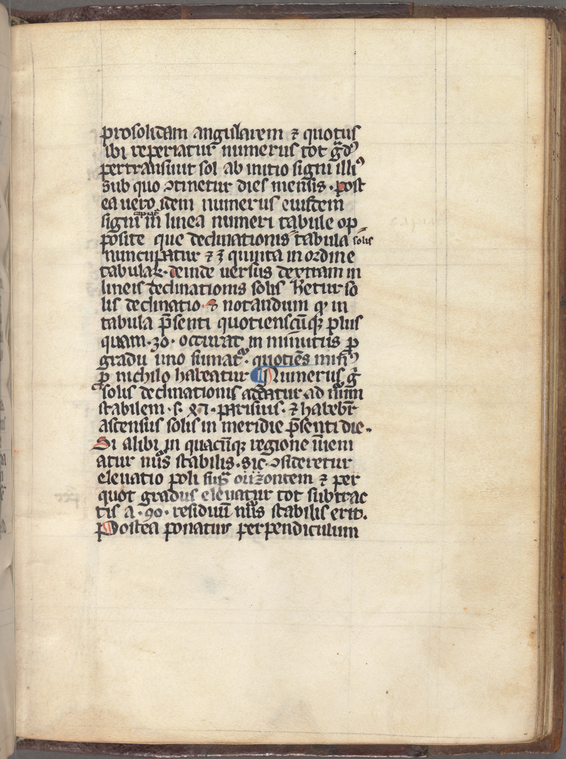 prosolidam angularem ⁊ quotus
ibi reperiatur numerus tot gͣdꝰ
pertransiuit sol ab initio signi illiꝰ
sub quo ↄtinetur dies mensis · post
ea uero idem numerus eiusdem
signi in linea numeri tabule op
posite que declinationis tabula solis
nuncupatur ⁊ ē quinta in ordine
tabulaꝝ · deinde uersus dextram in
lineis declinationis solis habetur so
lis declinatio · Et notandum ꝙ in
tabula p̄senti quotienscūqꝫ plus
quam · 30 · occurrat in minutiis ꝓ
gradu uno sumatᷣ · quotiēs minꝰ
ꝓ nichilo habeatur Numerus gͣ
solis declinationis addatur ad nūm
stabilem · s · 41 · parisius · ⁊ habebiᷣt
ascensus solis in meridie p̄senti die ·
Si alibi in quacūqꝫ regione inueni
atur nūs stabilis · sic · ↄsideretur
eleuatio poli suꝑ orizontem ⁊ per
quot gradus eleuatur tot subtrac
tis a · 90 · residuū nūs stabilis erit ·
Postea ponatur perpendiculum